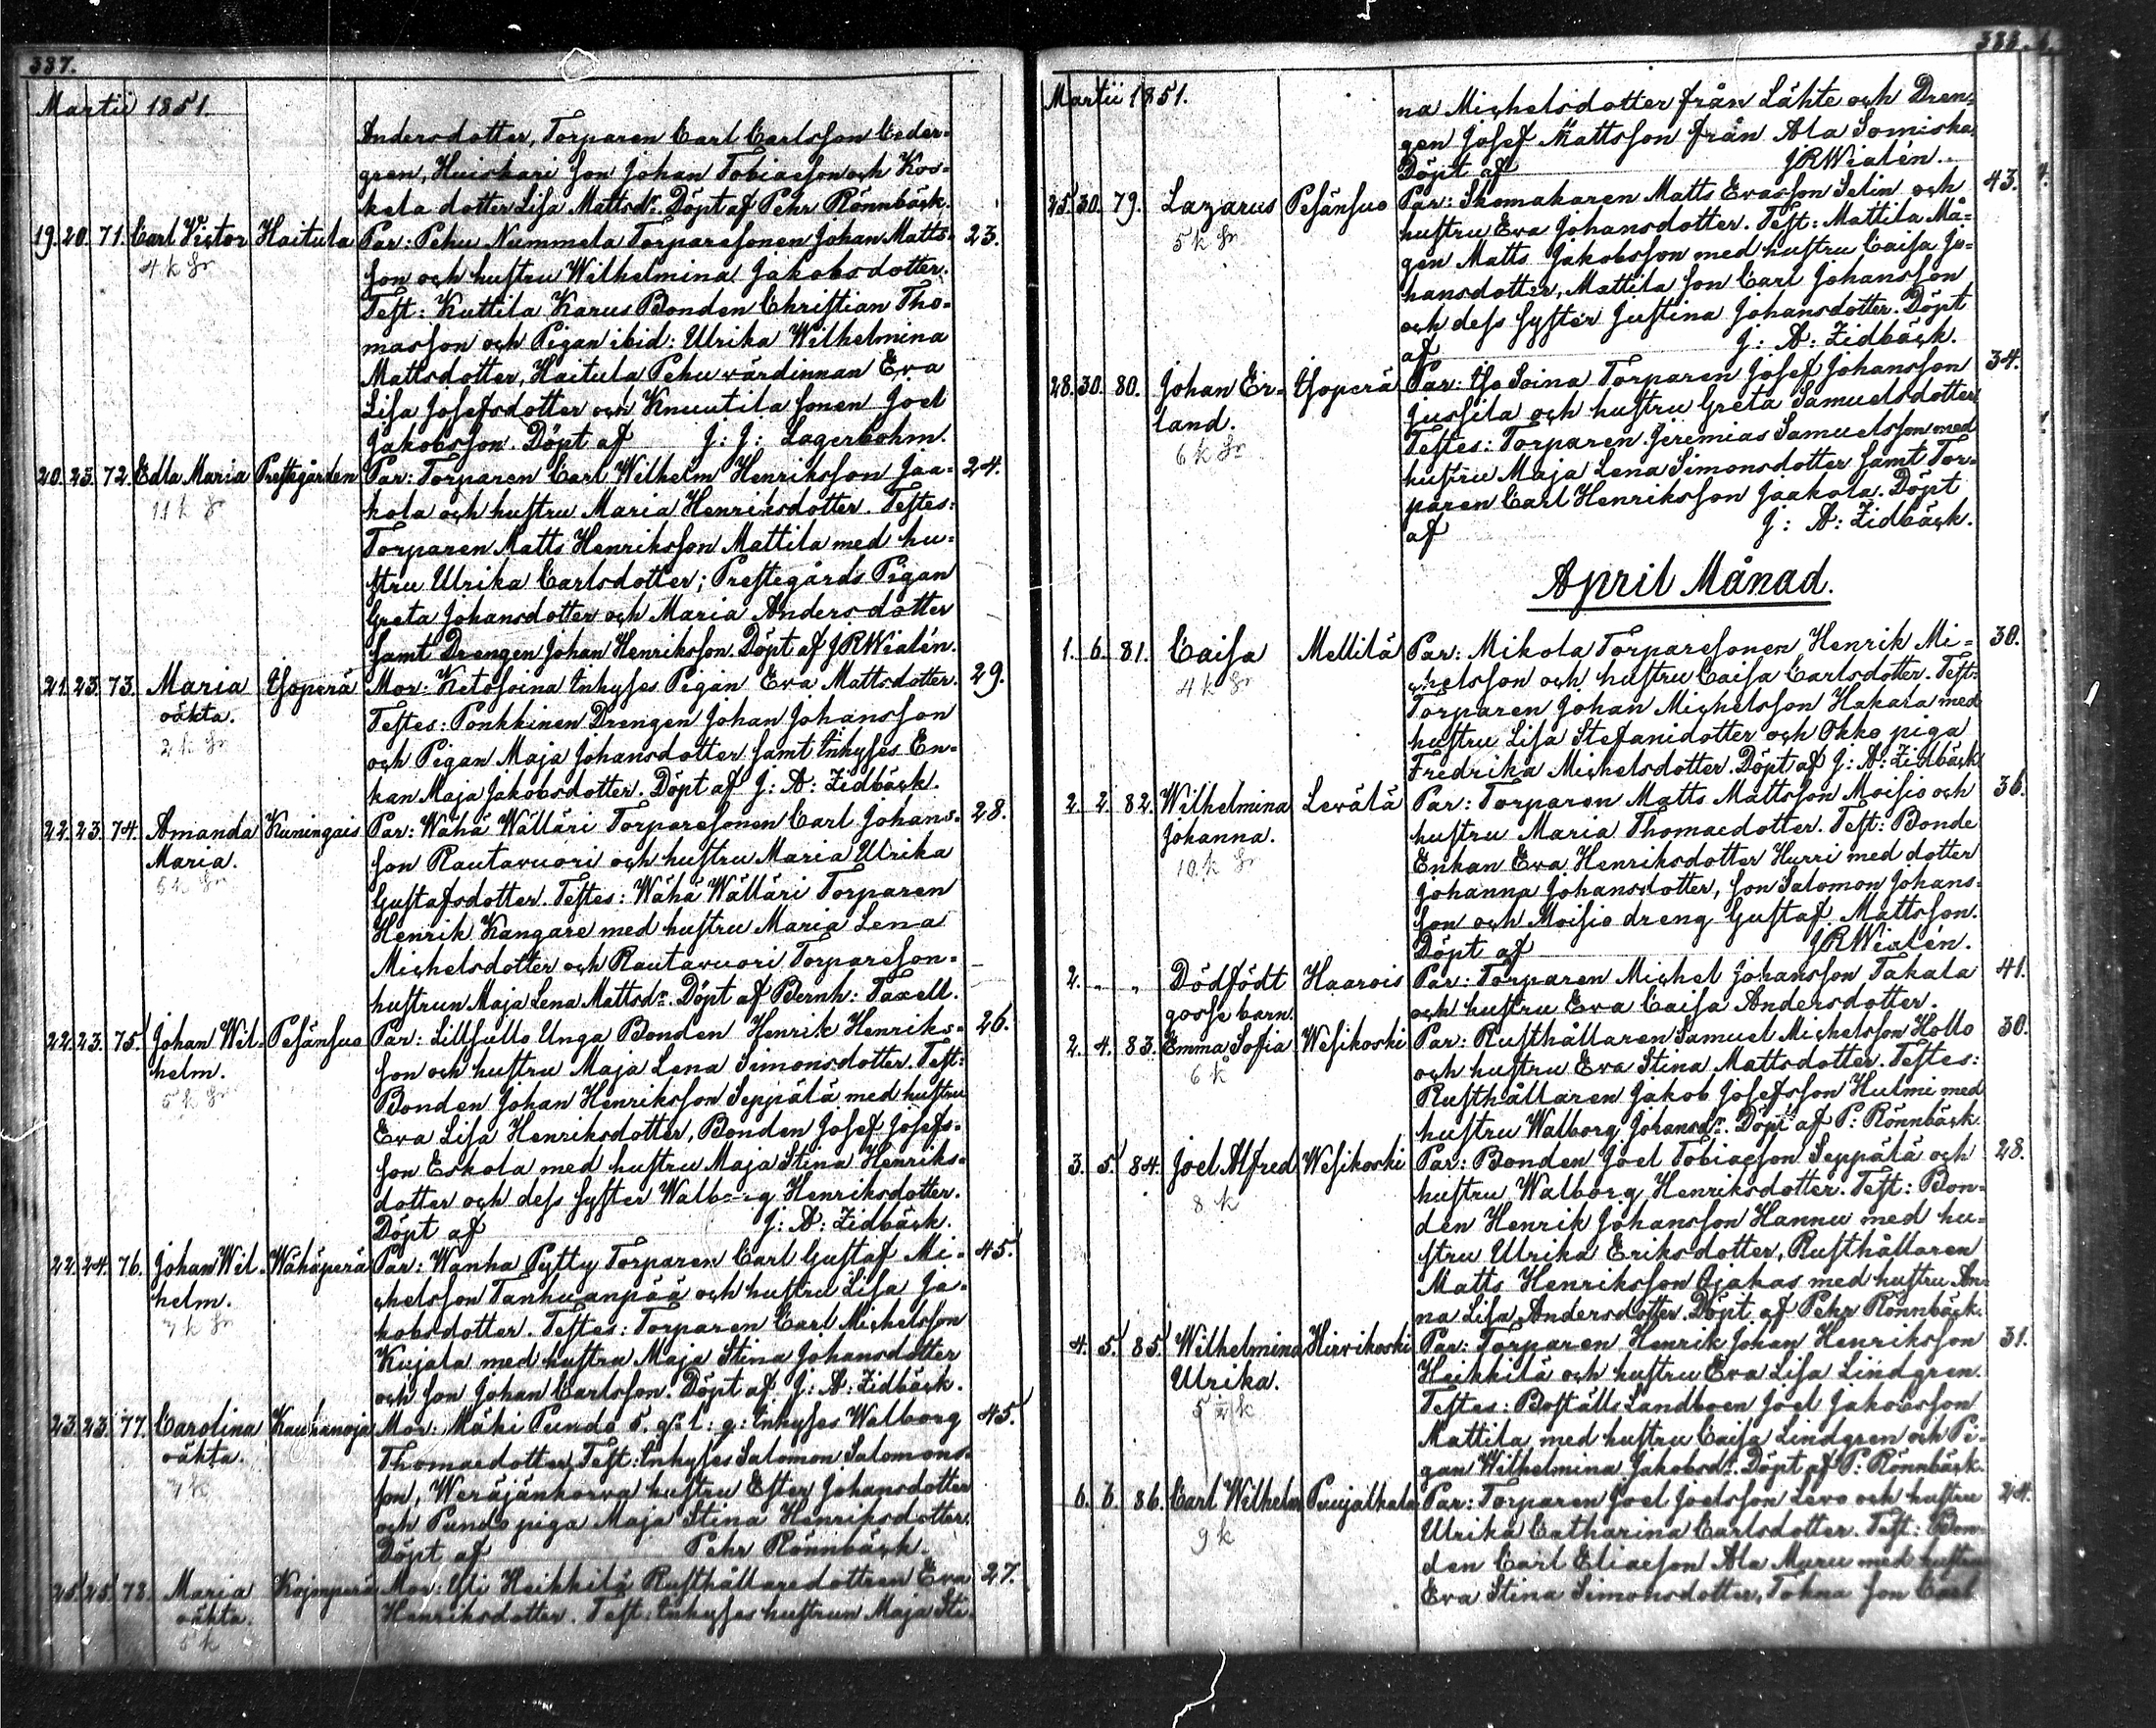 337.
Martii 1851.
Andersdotter, Torparen Carl Carlsson Ceder-
gren, Huiskari son Johan Tobiaeson och Kos-
kela dotter Lisa Mattsdr. Döpt af Pehr Rönnbäck.
19. 20. 71. Carl Victor Haitula Par: Pehu Nummela Torparesonen Johan Matts- 23.
4 k gr son och hustru Wilhelmina Jakobsdotter.
Test: Kuttila Karus Bonden Christian Tho-
masson och Pigan ibid: Ulrika Wilhelmina
Mattsdotter, Haitula Pehu värdinnan Eva
Lisa Josefsdotter och Knuutila sonen Joel
Jakobsson. Döpt af J: J: Lagerbohm.
20. 23. 72. Edla Maria Prestegården Par: Torparen Carl Wilhelm Henriksson Jaa- 24.
11 k gr kola och hustru Maria Henriksdotter. Testes:
Torparen Matts Henriksson Mattila med hu-
stru Ulrika Carlsdotter; Prestegårds Pigan
Greta Johansdotter och Maria Andersdotter
samt Drengen Johan Henriksson. Döpt af JRWialén.
21. 23. 73. Maria Ylsoperä Mor: Ketosoina Inhyses Pigan Eva Mattsdotter. 29.
oäkta. Testes: Ponkkinen Drengen Johan Johansson
2 k gr och Pigan Maja Johansdotter samt Inhyses En-
kan Maja Jakobsdotter. Döpt af J: A: Zidbäck.
22. 23. 74. Amanda Kuningais Par: Wähä Wälläri Torparesonen Carl Johans- 28.
Maria. son Rautavuori och hustru Maria Ulrika
5 k gr Gustafsdotter. Testes: Wähä Wälläri Torparen
Henrik Kangare med hustru Maria Lena
Michelsdotter och Rautavuori Torpareson-
hustrun Maja Lena Mattsdr. Döpt af Bernh: Taxell.
22. 23. 75. Johan Wil- Pesänsuo Par: Lillsullo Unga Bonden Henrik Henriks- 26.
helm. son och hustru Maja Lena Simonsdotter. Test:
5 k gr Bonden Johan Henriksson Seppälä med hustru
Eva Lisa Henriksdotter, Bonden Josef Josefs-
son Eskola med hustru Maja Stina Henriks-
dotter och dess syster Walborg Henriksdotter.
Döpt af J: A: Zidbäck.
22. 24. 76. Johan Wil- Wähäperä Par: Wanha Pytty Torparen Carl Gustaf Mi- 45.
helm. chelsson Tanhuanpää och hustru Lisa Ja-
7 k gr kobsdotter. Testes: Torparen Carl Michelsson
Kujala med hustru Maja Stina Johansdotter
och son Johan Carlsson. Döpt af J: A: Zidbäck.
23. 23. 77. Carolina Kauhanoja Mor: Mäki Pundo Inhyses Walborg 45.
oäkta. Thomaedotter, Test: Inhyses Salomon Salomons-
7 k son, Weräjänkorva hustru Ester Johansdotter
och Pundo piga Maja Stina Henriksdotter.
Döpt af Pehr Rönnbäck.
25. 25. 78. Maria Kojonperä Mor: Yli Heikkilä Rusthållaredottren Eva 27.
oäkta. Henriksdotter. Test: Inhyses hustrun Maja Sti-
5 k
338.
Martii 1851.
na Michelsdotter från Lähte och Dren-
gen Josef Mattsson från Ala Somiska
Döpt af JRWialén.
25. 30. 79. Lazarus Pesänsuo Par: Skomakaren Matts Evasson Selin och 43.
5 k gr hustru Eva Johansdotter. Test: Mattila Må-
gen Matts Jakobsson med hustru Caisa Jo-
hansdotter, Mattila son Carl Johansson
och dess syster Justina Johansdotter. Döpt
af J: A: Zidbäck.
28. 30. 80. Johan Er- Ylsoperä Par: Iso Soina Torparen Josef Johansson 34.
land. Jussila och hustru Greta Samuelsdotter
6 k gr Testes: Torparen Jeremias Samuelsson med
hustru Maja Lena Simonsdotter samt Tor-
paren Carl Henriksson Jaakola. Döpt
af J: A: Zidbäck.
April Månad.
1. 6. 81. Caisa Mellilä Par: Mikola Torparesonen Henrik Mi- 30.
4 k gr chelsson och hustru Caisa Carlsdotter. Test:
Torparen Johan Michelsson Hakala med
hustru Lisa Stefanidotter och Okko piga
Fredrika Michelsdotter. Döpt af J: A: Zidbäck
2. 2. 82. Wilhelmina Levälä Par: Torparen Matts Mattsson Moisio och 36.
Johanna. hustru Maria Thomaedotter. Test: Bonde
10 k gr Enkan Eva Henriksdotter Hurri med dotter
Johanna Johansdotter, son Salomon Johans-
son och Moisio dreng Gustaf Mattsson.
Döpt af JRWialén.
2. „ „ Dödfödt Haarois Par: Torparen Michel Johansson Takala 41.
gosse barn. och hustru Eva Caisa Andersdotter.
2. 4. 83. Emma Sofia Wesikoski Par: Rusthållaren Samuel Michelsson Hollo 30.
6 k och hustru Eva Stina Mattsdotter. Testes:
Rusthållaren Jakob Josefsson Hulmi med
hustru Walborg Johansdr. Döpt af P: Rönnbäck.
3. 5. 84. Joel Alfred Wesikoski Par: Bonden Joel Tobiaeson Seppälä och 28.
8 k hustru Walborg Henriksdotter. Test: Bon-
den Henrik Johansson Hannu med hu-
stru Ulrika Eriksdotter, Rusthållaren
Matts Henriksson Ojakas med hustru An-
na Lisa Andersdotter. Döpt af Pehr Rönnbäck.
4. 5. 85. Wilhelmina Hirvikoski Par: Torparen Henrik Johan Henriksson 31.
Ulrika. Heikkilä och hustru Eva Lisa Lindgren.
Testes: Boställs Landboen Joel Jakobsson
Mattila med hustru Caisa Lindgren och Pi-
gan Wilhelmina Jakobsdr. Döpt af P: Rönnbäck.
6. 6. 86. Carl Wilhelm Puujalkala Par: Torparen Joel Joelsson Levo och hustru 24.
9 k Ulrika Catharina Carlsdotter. Test: Bon-
den Carl Eliaeson Ala Muru med hustru
Eva Stina Simonsdotter, Tokna son Carl